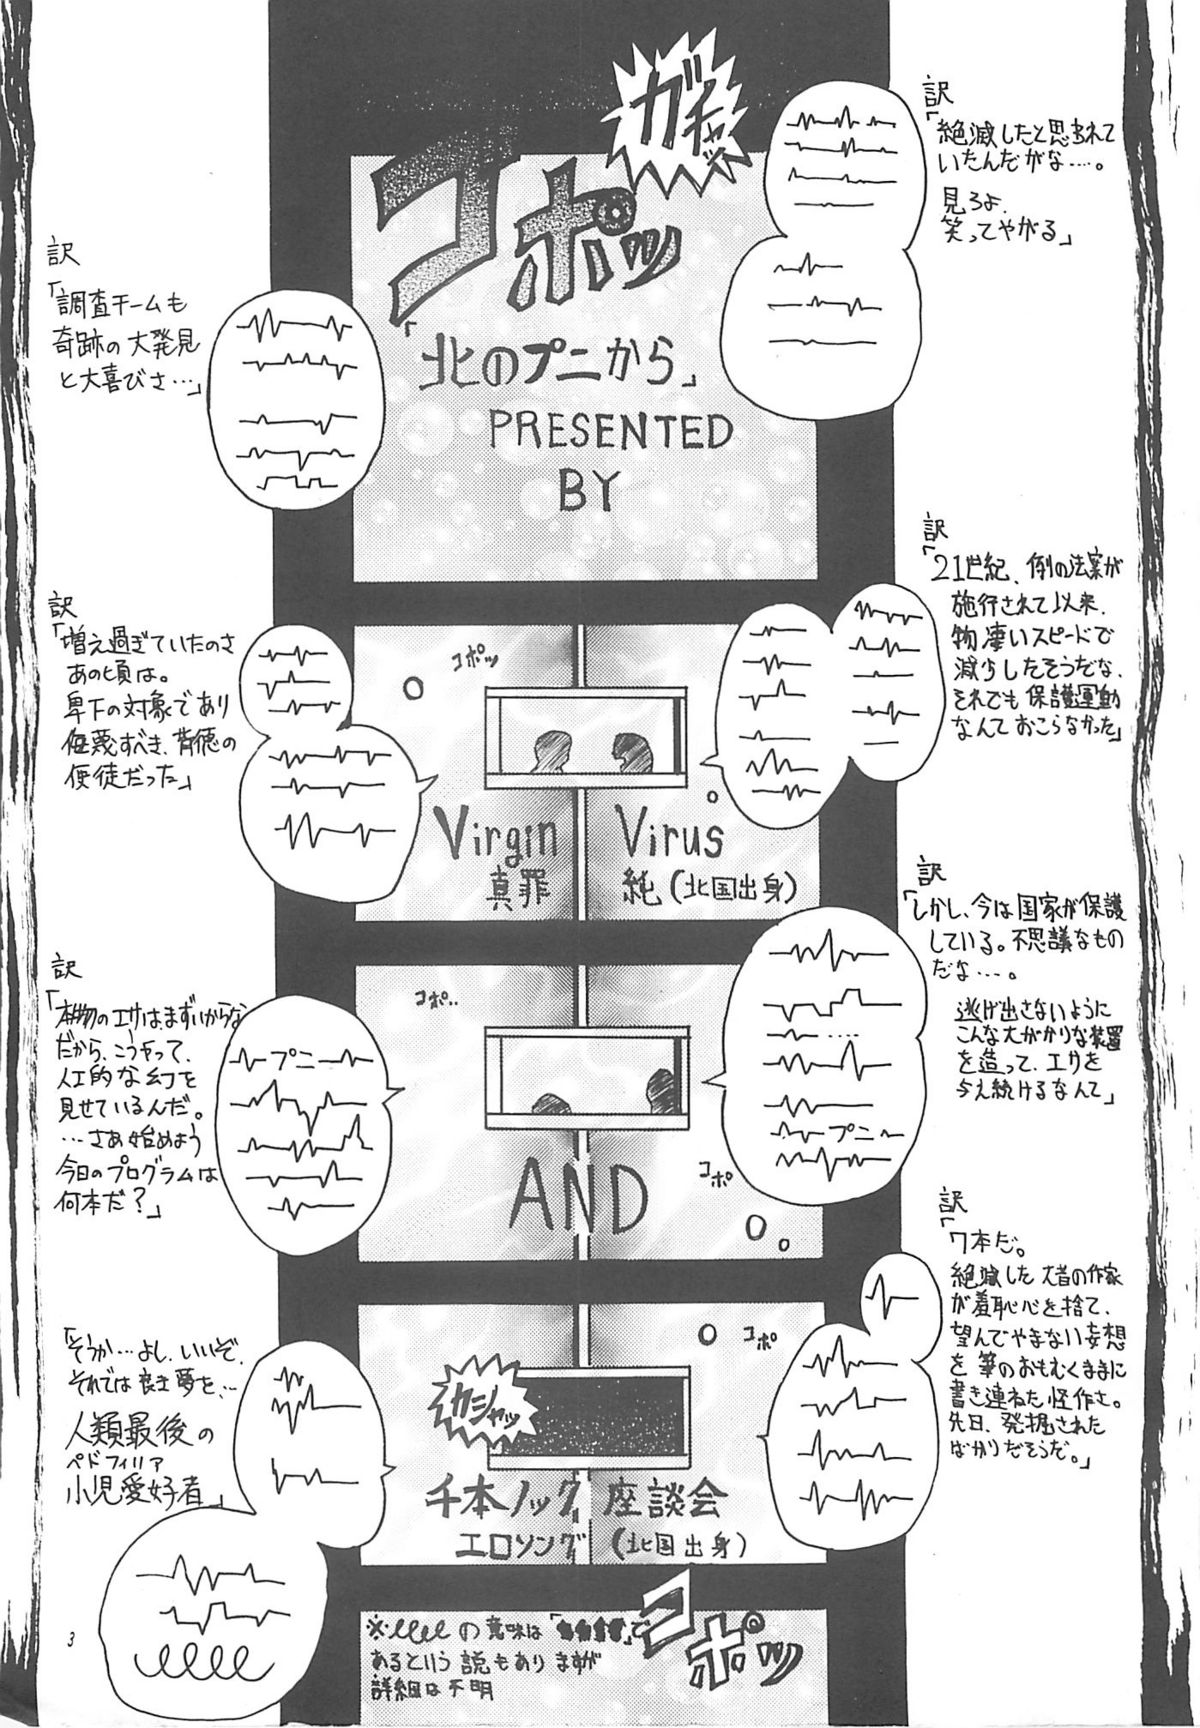 ガチャッ
訳
「絶滅したと思われて
いたんだがな……。
見ろよ、
笑ってやがる」
コポッ
訳
「調査チームも
奇跡の大発見
と大喜びさ…」
「北のプニから」
PRESENTED
BY
訳
「21世紀、例の法案が
施行されて以来、
物凄いスピードで
減少したそうだな、
それでも保護運動
なんておこらなかった」
訳
「増え過ぎていたのさ
あの頃は。
卑下の対象であり
侮蔑すべき、背徳の
使徒だった」
コポッ
Virgin Virus
真罪 純(北国出身)
訳
「しかし、今は国家が保護
している。不思議なもの
だな…。
逃げ出さないように
こんな大がかりな装置
を造って、エサを
与え続けるなんて」
訳
「本物のエサはまずいからな
だから、こうやって、
人工的な幻を
見せているんだ。
…さあ始めよう
今日のプログラムは
何本だ?」
コポ..
プニ
プニ
コポ
AND
訳
「7本だ。
絶滅した大昔の作家
が羞恥心を捨て、
望んでやまない妄想
を筆のおもむくままに
書き連ねた怪作さ。
先日、発掘された
ばかりだそうだ。」
「そうか…よし、いいぞ、
それでは良き夢を…
人類最後の
ペドフィリア
小児愛好者」
コポ
カシャッ
千本ノック 座談会
エロソング (北国出身)
コポッ
※ の意味は「 」で
あるという説もありますが
詳細は不明
3